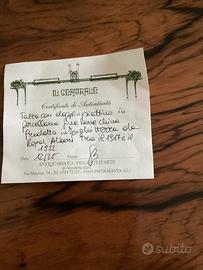 IL CENTRALE
Certificato di Autenticità
Tazza con doppio piattino in
porcellana fine bone china
Prodotta in Inghilterra da
Royal Albert Tra il 1917 e il
1922
Data 12/25 Firma
ANTIQUARIATO / OGGETTI D'ARTE
di
PIETRASANTA (LU)
subito